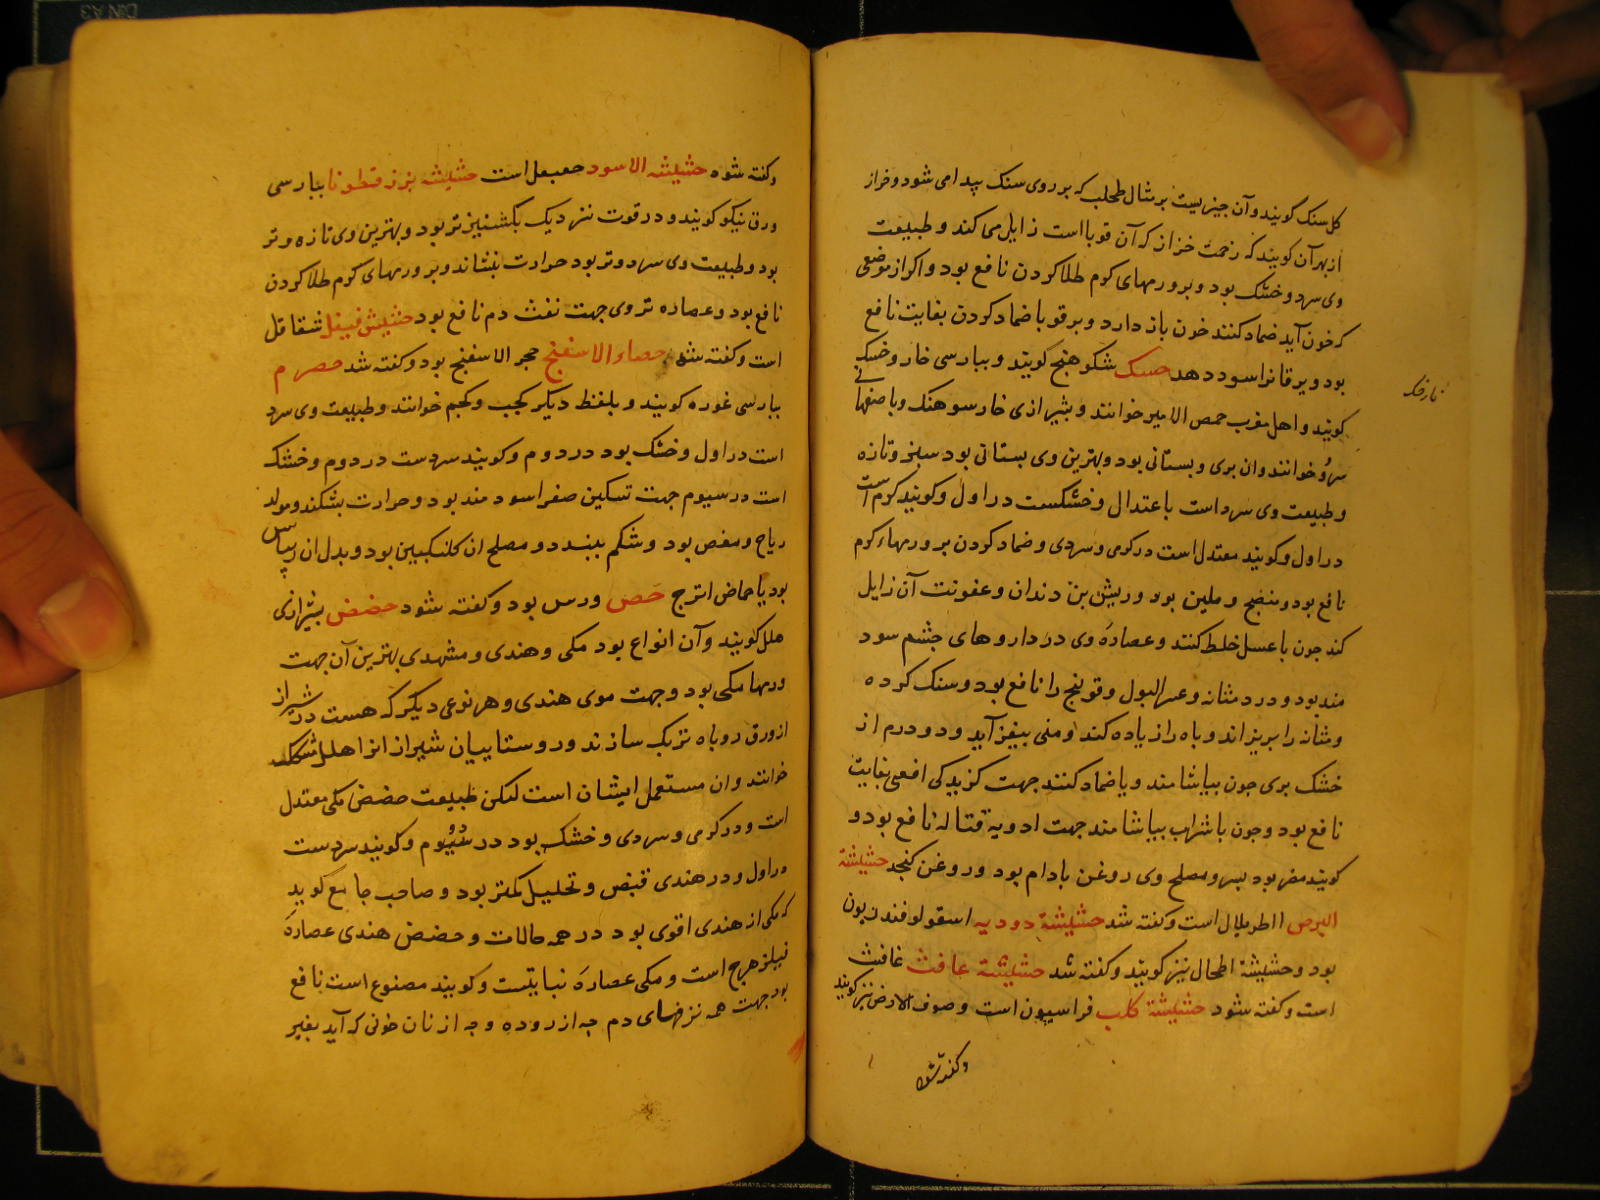 کل سنک کویند و آن چیزیست بر مثال طحلب که بر روی سنک پیدا می شود و خراز
از بهر آن کویند که زحمت خزاز که آن قوبا است زایل می کند و طبیعت
وی سرد و خشک بود و بر ورمهای کرم طلا کردن نافع بود و اکر از موضعی
که خون آید ضماد کنند خون باز دارد و بر قوبا ضماد کردن بغایت نافع
بود و یرقانرا سود دهد حسک شکوهنج کویند و بپارسی خار و خسک
کویند و اهل مغرب حمص الامیر خوانند و بشیرازی خار سوهنک و باصفهانی
خوانند و ان بری و بستانی بود و بهترین وی بستانی بود سبز و تازه
و طبیعت وی سرد است باعتدال و خشکست در اول و کویند کرم است
در اول و کویند معتدل است در کرمی و سردی و ضماد کردن بر ورمهاء کرم
نافع بود و منضج و ملین بود و ریش بن دندان و عفونت آن زایل
کند چون با عسل خلط کنند و عصاره وی در داروهای چشم سود
مند بود و درد مثانه و عسر البول و قولنج را نافع بود و سنک کرده
و مثانه را بریزاند و باه را زیاده کند و منی بیفزآید و دو درم از
خشک بری چون بیاشامند و یا ضماد کنند جهت کزیدکی افعی بغایت
نافع بود و چون با شراب بیاشامند جهت ادویهٔ قتاله نافع بود و
کویند مضر بود بسر و مصلح وی روغن بادام بود و روغن کنجد حشیشهٔ
البرص اطریلال است و کفته شد حشیشهٔ دودیه اسقولوفندریون
بود و حشیشهٔ الطحال نیز کویند و کفته شد حشیشهٔ غافث غافث
است و کفته شود حشیشهٔ کلب فراسیون است و صوف الارض نیز کویند
و کفته شود
و کفته شود حشیشه الاسود جعبعل است حشیشه بزر قطونا بپارسی
ورق نیکو کویند و در قوت نزدیک بکشنیز تر بود و بهترین وی تازه و تر
بود و طبیعت وی سرد و تر بود حرارت بنشاند و بر ورمهای کرم طلا کردن
نافع بود و عصاره تر وی جهت نفث دم نافع بود شقاقل
است و کفته شد حصاء الاسفنج حجر الاسفنج بود و کفته شد حصرم
بپارسی غوره کویند و بلفظ دیکر کحب و کحم خوانند و طبیعت وی سرد
است در اول و خشک بود در دوم و کویند سردست در دوم و خشک
است در سیوم جهت تسکین صفرا سودمند بود و حرارت بشکند و مولد
ریاح و مغص بود و شکم ببندد و مصلح ان کلنکبین بود و بدل ان ریباس
بود یا حماض اترج حص ورس بود و کفته شود حضض بشیرازی
هلل کویند و آن انواع بود مکی و هندی و مشهدی بهترین آن جهت
ورمها مکی بود و جهت موی هندی و هر نوعی دیکر که هست در شیراز
از ورق روباه تربک سازند و روستاییان شیراز انرا هلل
خوانند و ان مستعمل ایشان است لیکن طبیعت حضض مکی معتدل
است و در کرمی و سردی و خشک بود در دوم و کویند سردست
در اول و در هندی قبض و تحلیل کمتر بود و صاحب جامع کوید
که مکی از هندی اقوی بود در همه حالات و حضض هندی عصارهٔ
فیلزهرج است و مکی عصارهٔ نباتیست و کویند مصنوع است نافع
بود جهت همه نزفهای دم چه از روده و چه از زنان خونی که آید بغیر